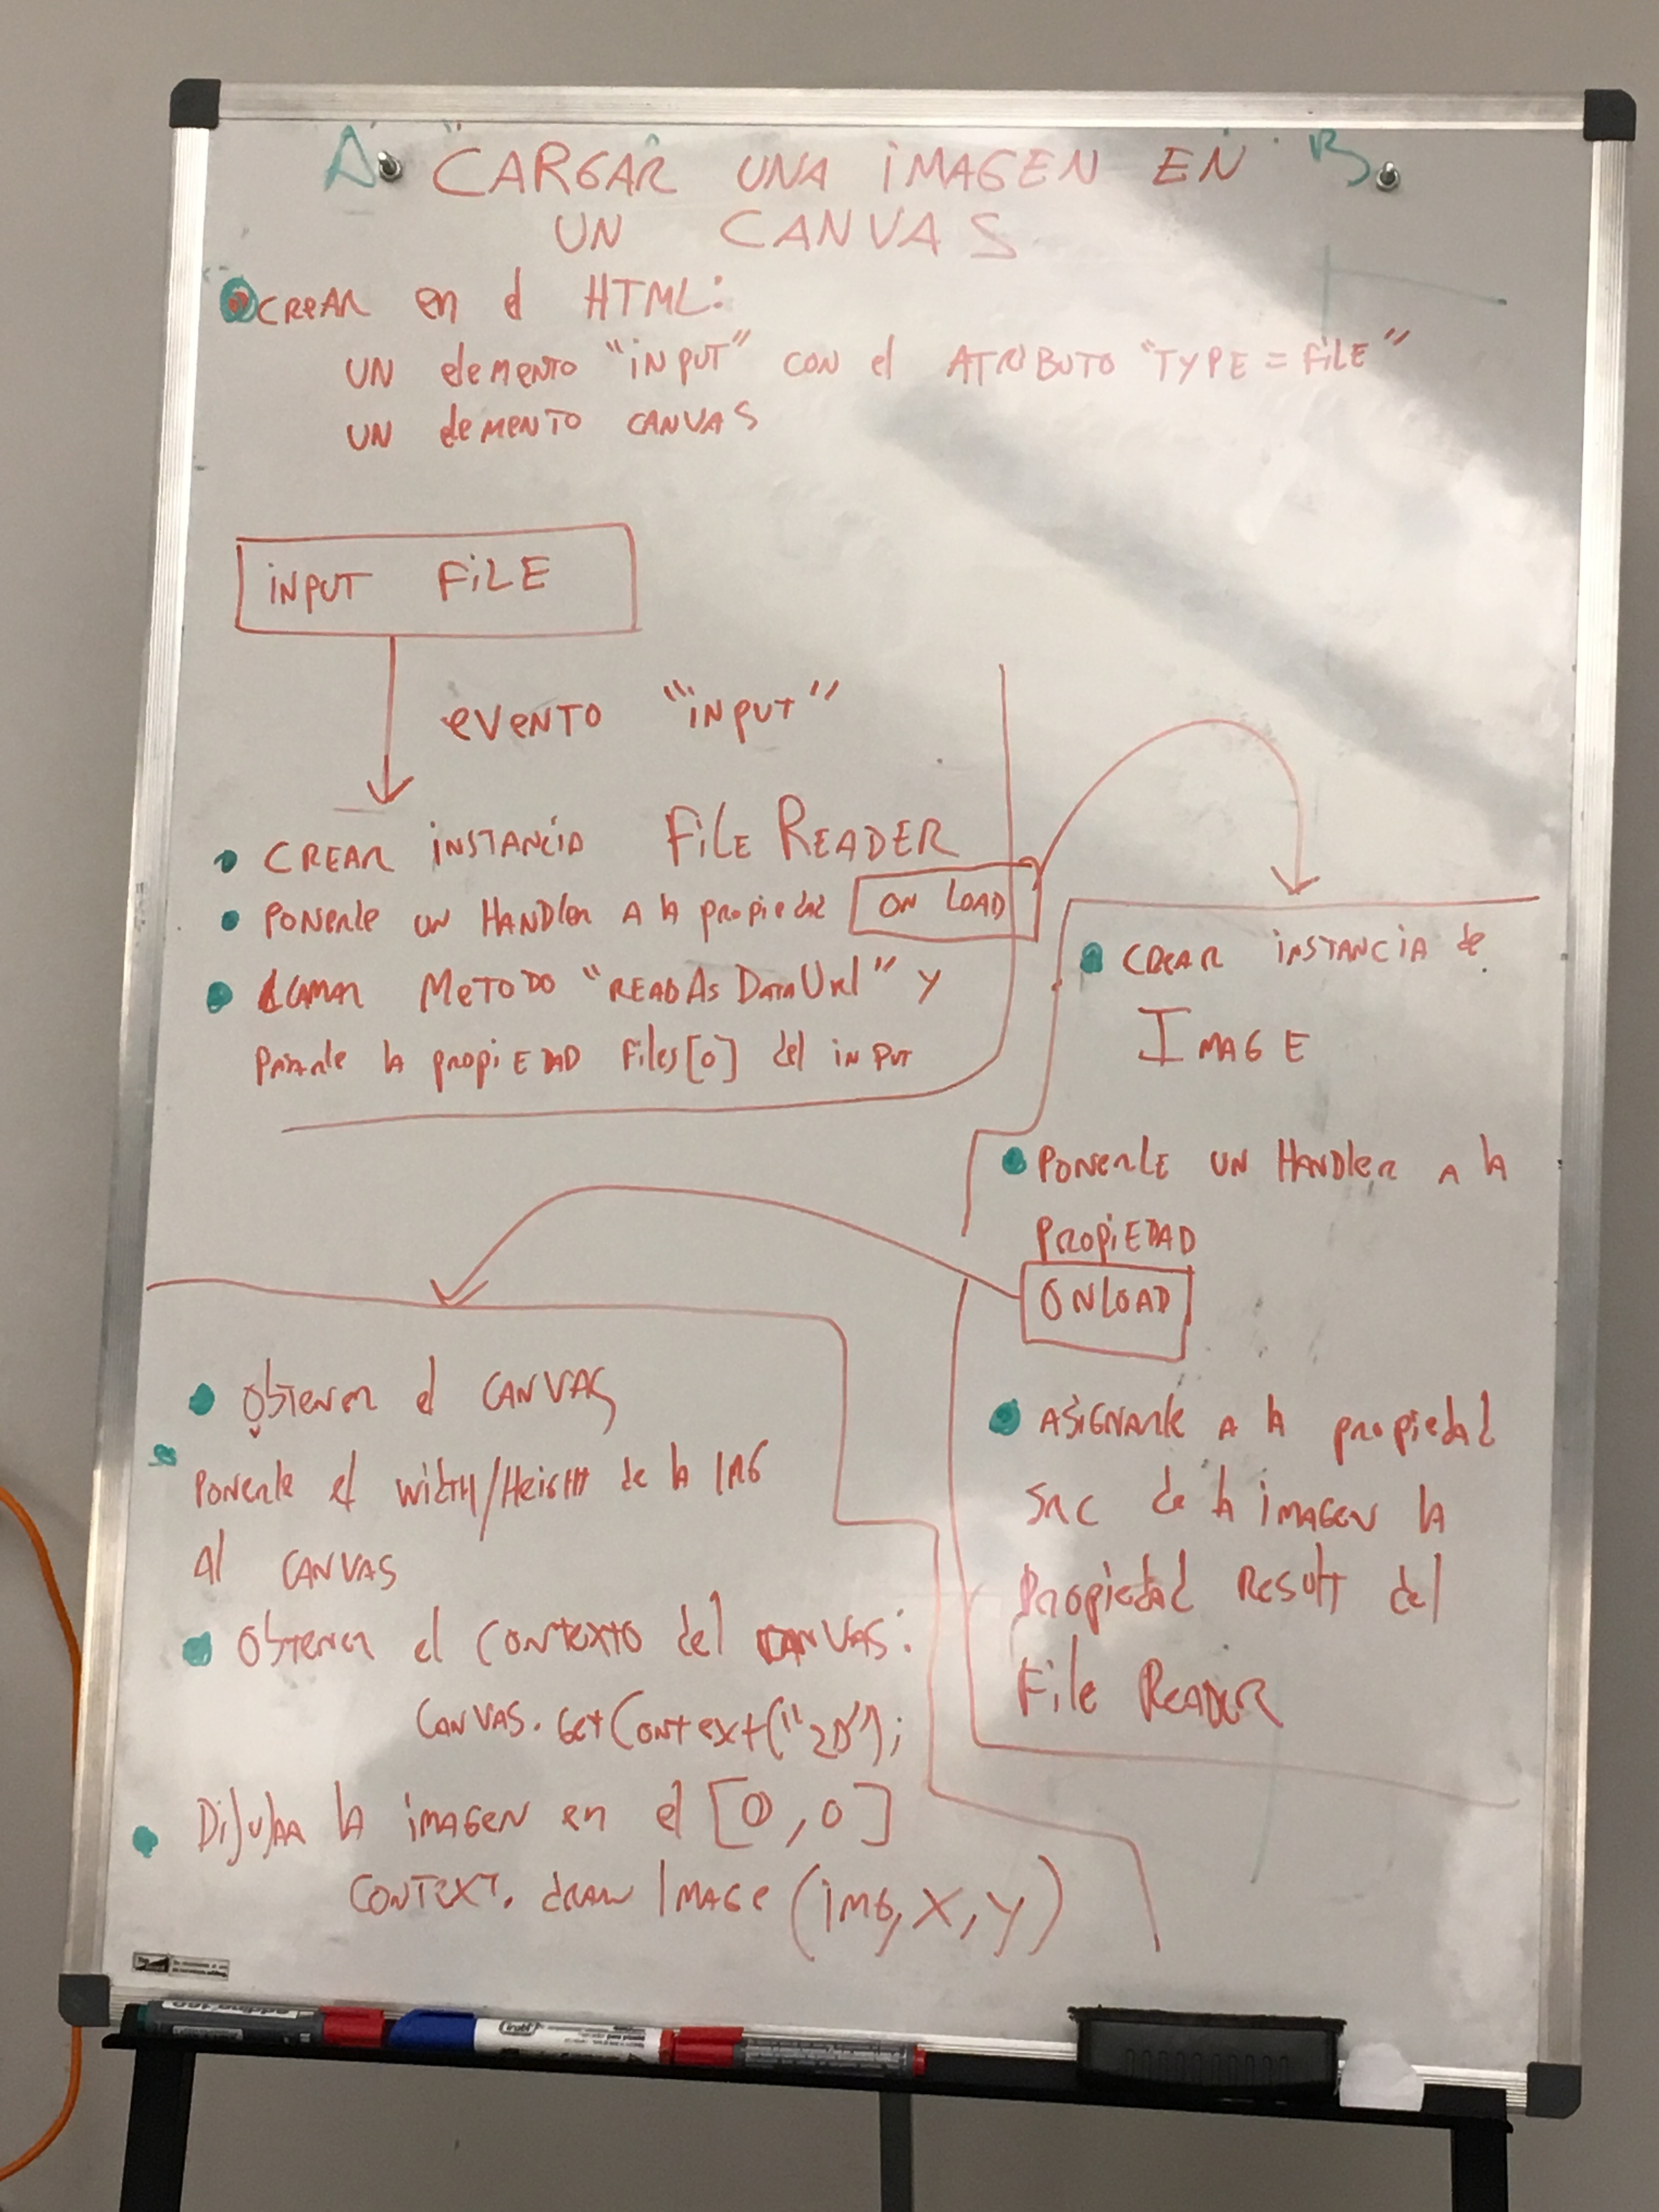 A. CARGAR UNA IMAGEN EN B.
UN CANVAS
CREAR en el HTML:
UN elemento "INPUT" con el ATRIBUTO "TYPE = FILE"
UN elemento CANVAS
INPUT FILE
evento "INPUT"
CREAR INSTANCIA FILE READER
Ponerle un Handler A la propiedad ON LOAD
LLAMAR METODO "READ AS DATA URL" Y
Pasarle la propiEDAD Files[0] del INPUT
CREAR INSTANCIA de
IMAGE
PONERLE UN HANDLER A la
PROPIEDAD
ONLOAD
ASIGNARLE A la propiedad
SRC de la imagen la
Propiedad Result del
File READER
Obtener el CANVAS
Ponerle el Width/Height de la IMG
Al CANVAS
Obtener el Contexto del CANVAS:
CANVAS.GetContext("2D");
Dibujar la imagen en el [0,0]
CONTEXT.drawImage(img, X, Y)